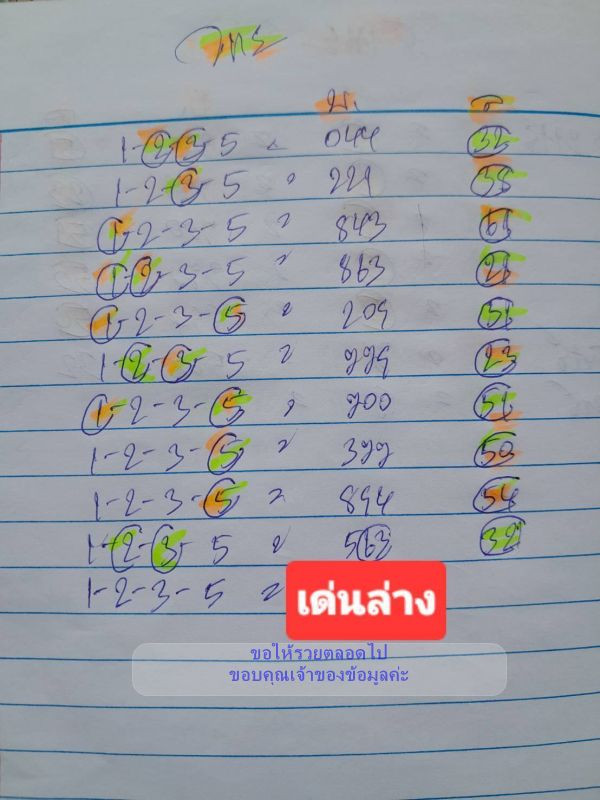 บ. ล
1-2-3-5 = 044 32
1-2-3-5 = 221 38
1-2-3-5 = 843 61
1-2-3-5 = 863 21
1-2-3-5 = 209 51
1-2-3-5 = 779 23
1-2-3-5 = 700 51
1-2-3-5 = 377 50
1-2-3-5 = 894 54
1-2-3-5 = 563 32
1-2-3-5 =
เด่นล่าง
ขอให้รวยตลอดไป
ขอบคุณเจ้าของข้อมูลค่ะ